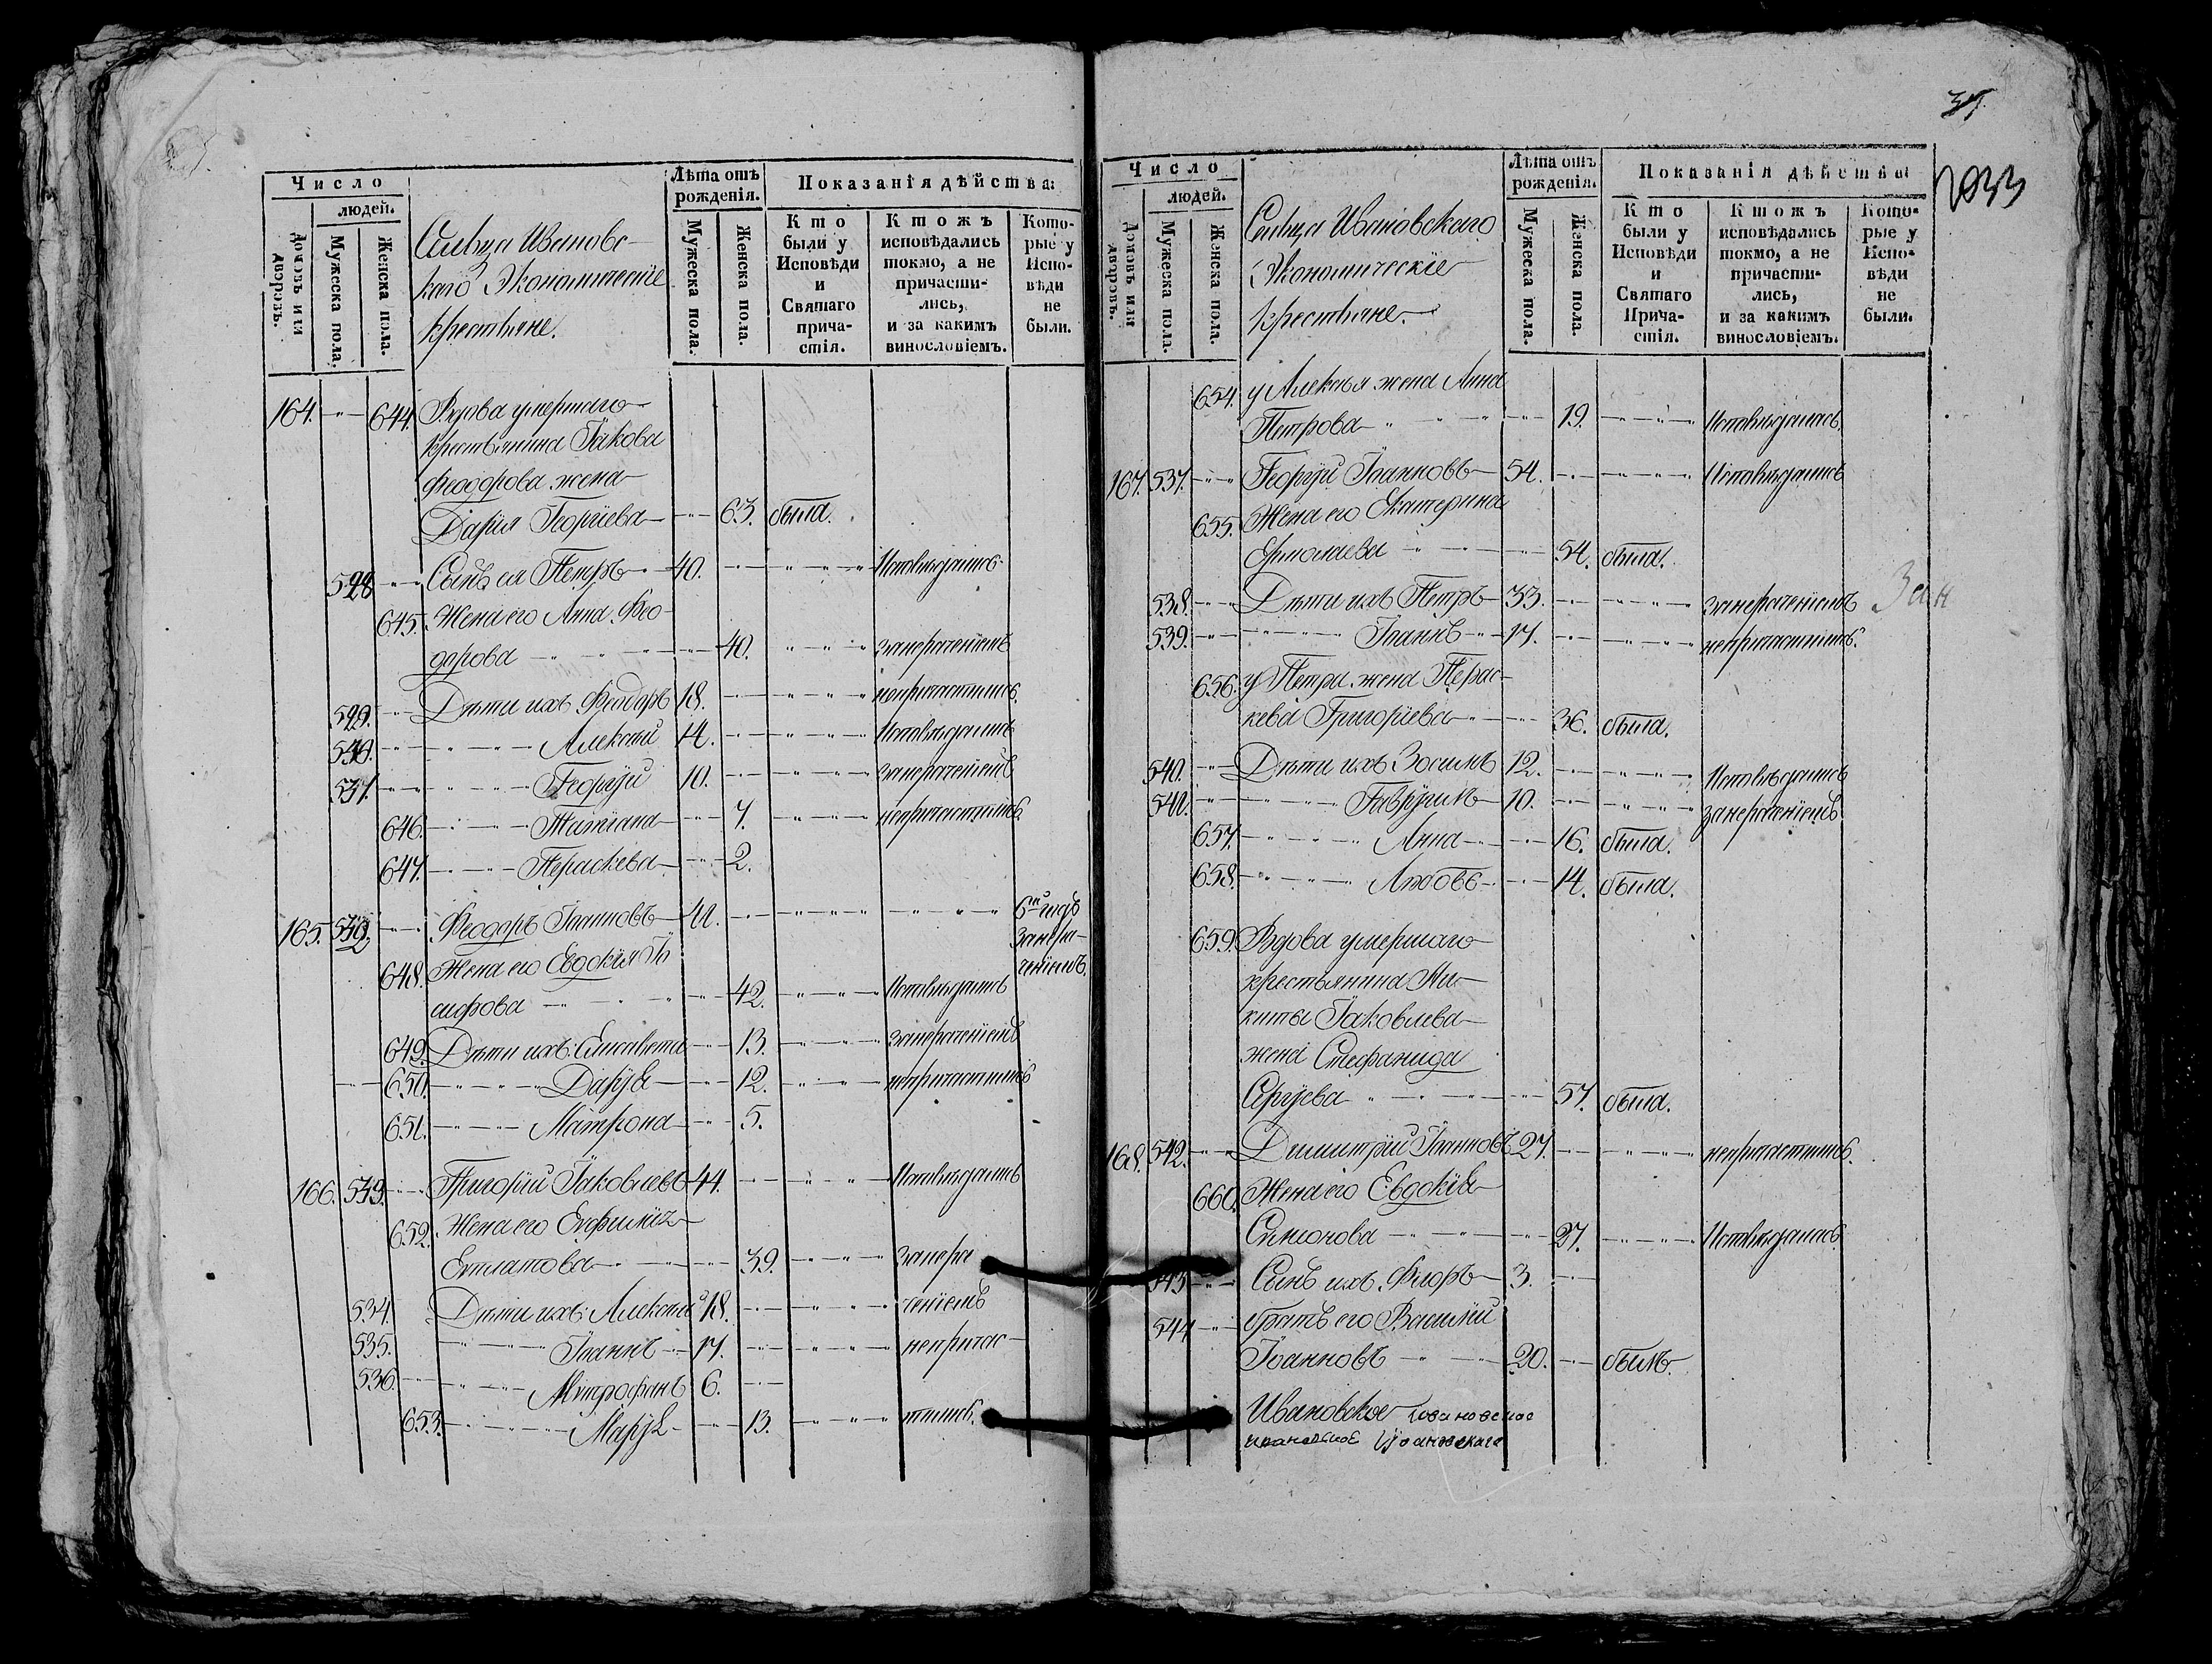 Число
людей.
Домовъ или дворовъ.
Мужеска пола.
Женска пола.
Сельца Ивановс-
каго Экономическіе
крестьяне.
Лѣта отъ
рожденія.
Мужеска пола.
Женска пола.
Показанія дѣйства:
Кто
были у
Исповѣди
и
Святаго
прича-
стія.
Ктожъ
исповѣдались
токмо, а не
причасти-
лись,
и за какимъ
винословіемъ.
Кото-
рые у
Испо-
вѣди
не
были.
164. 644. Вдова умершаго
крестьянина Іакова
Феодорова жена
Дарія Георгіева 63. была.
528 Сынъ ея Петръ 40. Исповѣдались
645. Жена его Анна Фео-
дорова 40. занераченіемъ
529. Дѣти ихъ Феодоръ 18. непричастились
530. Алексій 14. Исповѣдались
531. Георгій 10. занераченіемъ
646. Татіана 7. непричастились
647. Параскева 2.
165. 532 Феодоръ Іоанновъ 41. занера-
ченіемъ.
648. Жена его Евдокія Іо
сифова 42. Исповѣдались
649. Дѣти ихъ: Елисавета 13. занераченіемъ
650. Дарія 12. непричастились
651. Матрона 5.
166. 533. Григорій Іаковлевъ 44. Исповѣдались
652. Жена его Евфимія
39. занера
534. Дѣти ихъ: Алексій 18. ченіемъ
535. Іоаннъ 17. непричас-
536. Митрофанъ 6.
653. Марія 13. тились.
37.
1033
Число
людей.
Домовъ или дворовъ.
Мужеска пола.
Женска пола.
Сельца Ивановскаго
Экономическіе
крестьяне.
Лѣта отъ
рожденія.
Мужеска пола.
Женска пола.
Показанія дѣйства
Кто
были у
Исповѣди
и
Святаго
Прича-
стія.
Ктожъ
исповѣдались
токмо, а не
причасти-
лись,
и за какимъ
винословіемъ.
Кото-
рые у
Испо-
вѣди
не
были.
654. у Алексѣя жена Анна
Петрова 19. Исповѣдалась.
167. 537. Георгій Іоанновъ 54. Исповѣдались
655. Жена его Екатерина
Ермолаева 54. была.
538. Дѣти ихъ Петръ 33. занераченіемъ
539. Іоаннъ 17. непричастились.
656. у Петра жена Парас-
кева Григоріева 36. была.
540. Дѣти ихъ Зосимъ 12. Исповѣдались
541. Гавріилъ 10. занераченіемъ
657. Анна 16. была.
658. Любовь 14. была.
659. Вдова умершаго
крестьянина Ни-
киты Іаковлева
жена Стефанида
Сергіева 57. была.
168. 542. Димитрій Іоанновъ 27. непричастились.
660. Жена его Евдокія
Симонова 27. Исповѣдалась.
543 Сынъ ихъ Флоръ 3.
544 братъ его Василій
Іоанновъ 20. былъ.
Ивановское